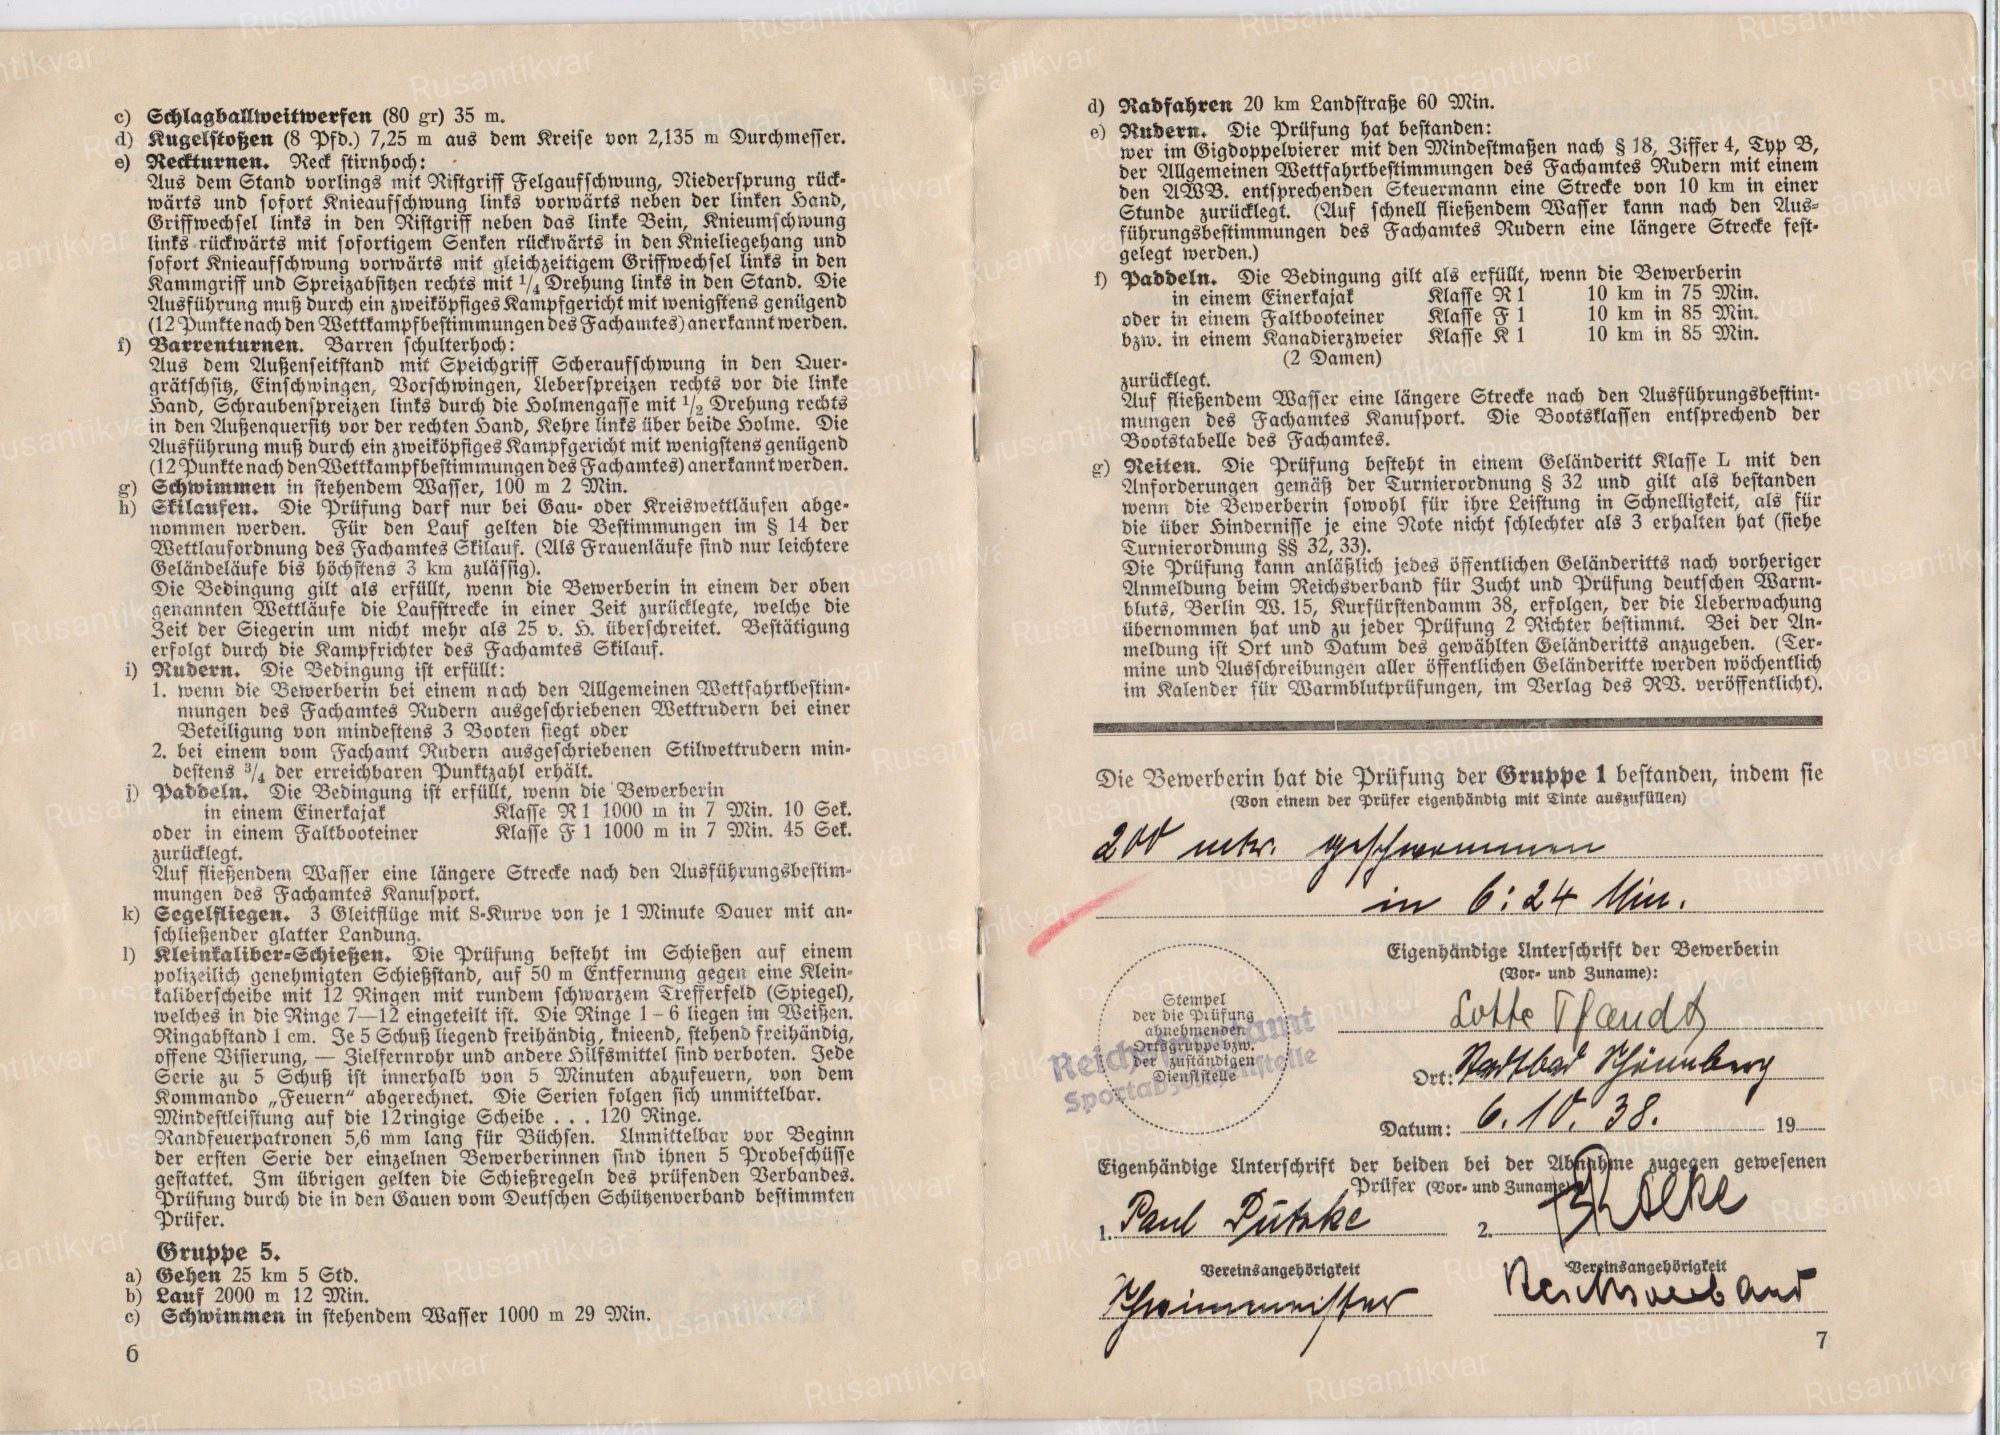 c) Schlagballweitwerfen (80 gr) 35 m.
d) Kugelstoßen (8 Pfd.) 7,25 m aus dem Kreise von 2,135 m Durchmesser.
e) Reckturnen. Reck stirnhoch:
Aus dem Stand vorlings mit Ristgriff Felgaufschwung, Niedersprung rück-
wärts und sofort Knieaufschwung links vorwärts neben der linken Hand,
Griffwechsel links in den Ristgriff neben das linke Bein, Knieumschwung
links rückwärts mit sofortigem Senken rückwärts in den Knieliegehang und
sofort Knieaufschwung vorwärts mit gleichzeitigem Griffwechsel links in den
Kammgriff und Spreizabsitzen rechts mit 1/4 Drehung links in den Stand. Die
Ausführung muß durch ein zweiköpfiges Kampfgericht mit wenigstens genügend
(12 Punkte nach den Wettkampfbestimmungen des Fachamtes) anerkannt werden.
f) Barrenturnen. Barren schulterhoch:
Aus dem Außenseitstand mit Speichgriff Scheraufschwung in den Quer-
grätschsitz, Einschwingen, Vorschwingen, Ueberspreizen rechts vor die linke
Hand, Schraubenspreizen links durch die Holmengasse mit 1/2 Drehung rechts
in den Außenquersitz vor der rechten Hand, Kehre links über beide Holme. Die
Ausführung muß durch ein zweiköpfiges Kampfgericht mit wenigstens genügend
(12 Punkte nach den Wettkampfbestimmungen des Fachamtes) anerkannt werden.
g) Schwimmen in stehendem Wasser, 100 m 2 Min.
h) Skilaufen. Die Prüfung darf nur bei Gau- oder Kreiswettläufen abge-
nommen werden. Für den Lauf gelten die Bestimmungen im § 14 der
Wettlaufordnung des Fachamtes Skilauf. (Als Frauenläufe sind nur leichtere
Geländeläufe bis höchstens 3 km zulässig).
Die Bedingung gilt als erfüllt, wenn die Bewerberin in einem der oben
genannten Wettläufe die Laufstrecke in einer Zeit zurücklegte, welche die
Zeit der Siegerin um nicht mehr als 25 v. H. überschreitet. Bestätigung
erfolgt durch die Kampfrichter des Fachamtes Skilauf.
i) Rudern. Die Bedingung ist erfüllt:
1. wenn die Bewerberin bei einem nach den Allgemeinen Wettfahrtbestim-
mungen des Fachamtes Rudern ausgeschriebenen Wettrudern bei einer
Beteiligung von mindestens 3 Booten siegt oder
2. bei einem vom Fachamt Rudern ausgeschriebenen Stilwettrudern min-
destens 3/4 der erreichbaren Punktzahl erhält.
j) Paddeln. Die Bedingung ist erfüllt, wenn die Bewerberin
in einem Einerkajak Klasse R 1 1000 m in 7 Min. 10 Sek.
oder in einem Faltbooteiner Klasse F 1 1000 m in 7 Min. 45 Sek.
zurücklegt.
Auf fließendem Wasser eine längere Strecke nach den Ausführungsbestim-
mungen des Fachamtes Kanusport.
k) Segelfliegen. 3 Gleitflüge mit S-Kurve von je 1 Minute Dauer mit an-
schließender glatter Landung.
l) Kleinkaliber-Schießen. Die Prüfung besteht im Schießen auf einem
polizeilich genehmigten Schießstand, auf 50 m Entfernung gegen eine Klein-
kaliberscheibe mit 12 Ringen mit rundem schwarzem Trefferfeld (Spiegel),
welches in die Ringe 7—12 eingeteilt ist. Die Ringe 1 – 6 liegen im Weißen.
Ringabstand 1 cm. Je 5 Schuß liegend freihändig, knieend, stehend freihändig,
offene Visierung, — Zielfernrohr und andere Hilfsmittel sind verboten. Jede
Serie zu 5 Schuß ist innerhalb von 5 Minuten abzufeuern, von dem
Kommando „Feuern“ abgerechnet. Die Serien folgen sich unmittelbar.
Mindestleistung auf die 12ringige Scheibe . . . 120 Ringe.
Randfeuerpatronen 5,6 mm lang für Büchsen. Unmittelbar vor Beginn
der ersten Serie der einzelnen Bewerberinnen sind ihnen 5 Probeschüsse
gestattet. Im übrigen gelten die Schießregeln des prüfenden Verbandes.
Prüfung durch die in den Gauen vom Deutschen Schützenverband bestimmten
Prüfer.
Gruppe 5.
a) Gehen 25 km 5 Std.
b) Lauf 2000 m 12 Min.
c) Schwimmen in stehendem Wasser 1000 m 29 Min.
6
d) Radfahren 20 km Landstraße 60 Min.
e) Rudern. Die Prüfung hat bestanden:
wer im Gigdoppelvierer mit den Mindestmaßen nach § 18, Ziffer 4, Typ B,
der Allgemeinen Wettfahrtbestimmungen des Fachamtes Rudern mit einem
den AWB. entsprechenden Steuermann eine Strecke von 10 km in einer
Stunde zurücklegt. (Auf schnell fließendem Wasser kann nach den Aus-
führungsbestimmungen des Fachamtes Rudern eine längere Strecke fest-
gelegt werden.)
f) Paddeln. Die Bedingung gilt als erfüllt, wenn die Bewerberin
in einem Einerkajak Klasse R 1 10 km in 75 Min.
oder in einem Faltbooteiner Klasse F 1 10 km in 85 Min.
bzw. in einem Kanadierzweier Klasse K 1 10 km in 85 Min.
(2 Damen)
zurücklegt.
Auf fließendem Wasser eine längere Strecke nach den Ausführungsbestim-
mungen des Fachamtes Kanusport. Die Bootsklassen entsprechend der
Bootstabelle des Fachamtes.
g) Reiten. Die Prüfung besteht in einem Geländeritt Klasse L mit den
Anforderungen gemäß der Turnierordnung § 32 und gilt als bestanden
wenn die Bewerberin sowohl für ihre Leistung in Schnelligkeit, als für
die über Hindernisse je eine Note nicht schlechter als 3 erhalten hat (siehe
Turnierordnung §§ 32, 33).
Die Prüfung kann anläßlich jedes öffentlichen Geländeritts nach vorheriger
Anmeldung beim Reichsverband für Zucht und Prüfung deutschen Warm-
bluts, Berlin W. 15, Kurfürstendamm 38, erfolgen, der die Ueberwachung
übernommen hat und zu jeder Prüfung 2 Richter bestimmt. Bei der An-
meldung ist Ort und Datum des gewählten Geländeritts anzugeben. (Ter-
mine und Ausschreibungen aller öffentlichen Geländeritte werden wöchentlich
im Kalender für Warmblutprüfungen, im Verlag des RV. veröffentlicht).
Die Bewerberin hat die Prüfung der Gruppe 1 bestanden, indem sie
(Von einem der Prüfer eigenhändig mit Tinte auszufüllen)
200 mtr. geschwommen
in 6:24 Min.
Eigenhändige Unterschrift der Bewerberin
(Vor- und Zuname):
Stempel
der die Prüfung
abnehmenden
Ortsgruppe bzw.
der zuständigen
Dienststelle
Lotte
Ort: Stadtbad Schöneberg
Datum: 6. 10. 38. 19
Eigenhändige Unterschrift der beiden bei der Abnahme zugegen gewesenen
Prüfer (Vor- und Zuname)
1. Paul
2.
Vereinsangehörigkeit Vereinsangehörigkeit
Schwimmeister Reichsverband
7
Rusantikvar